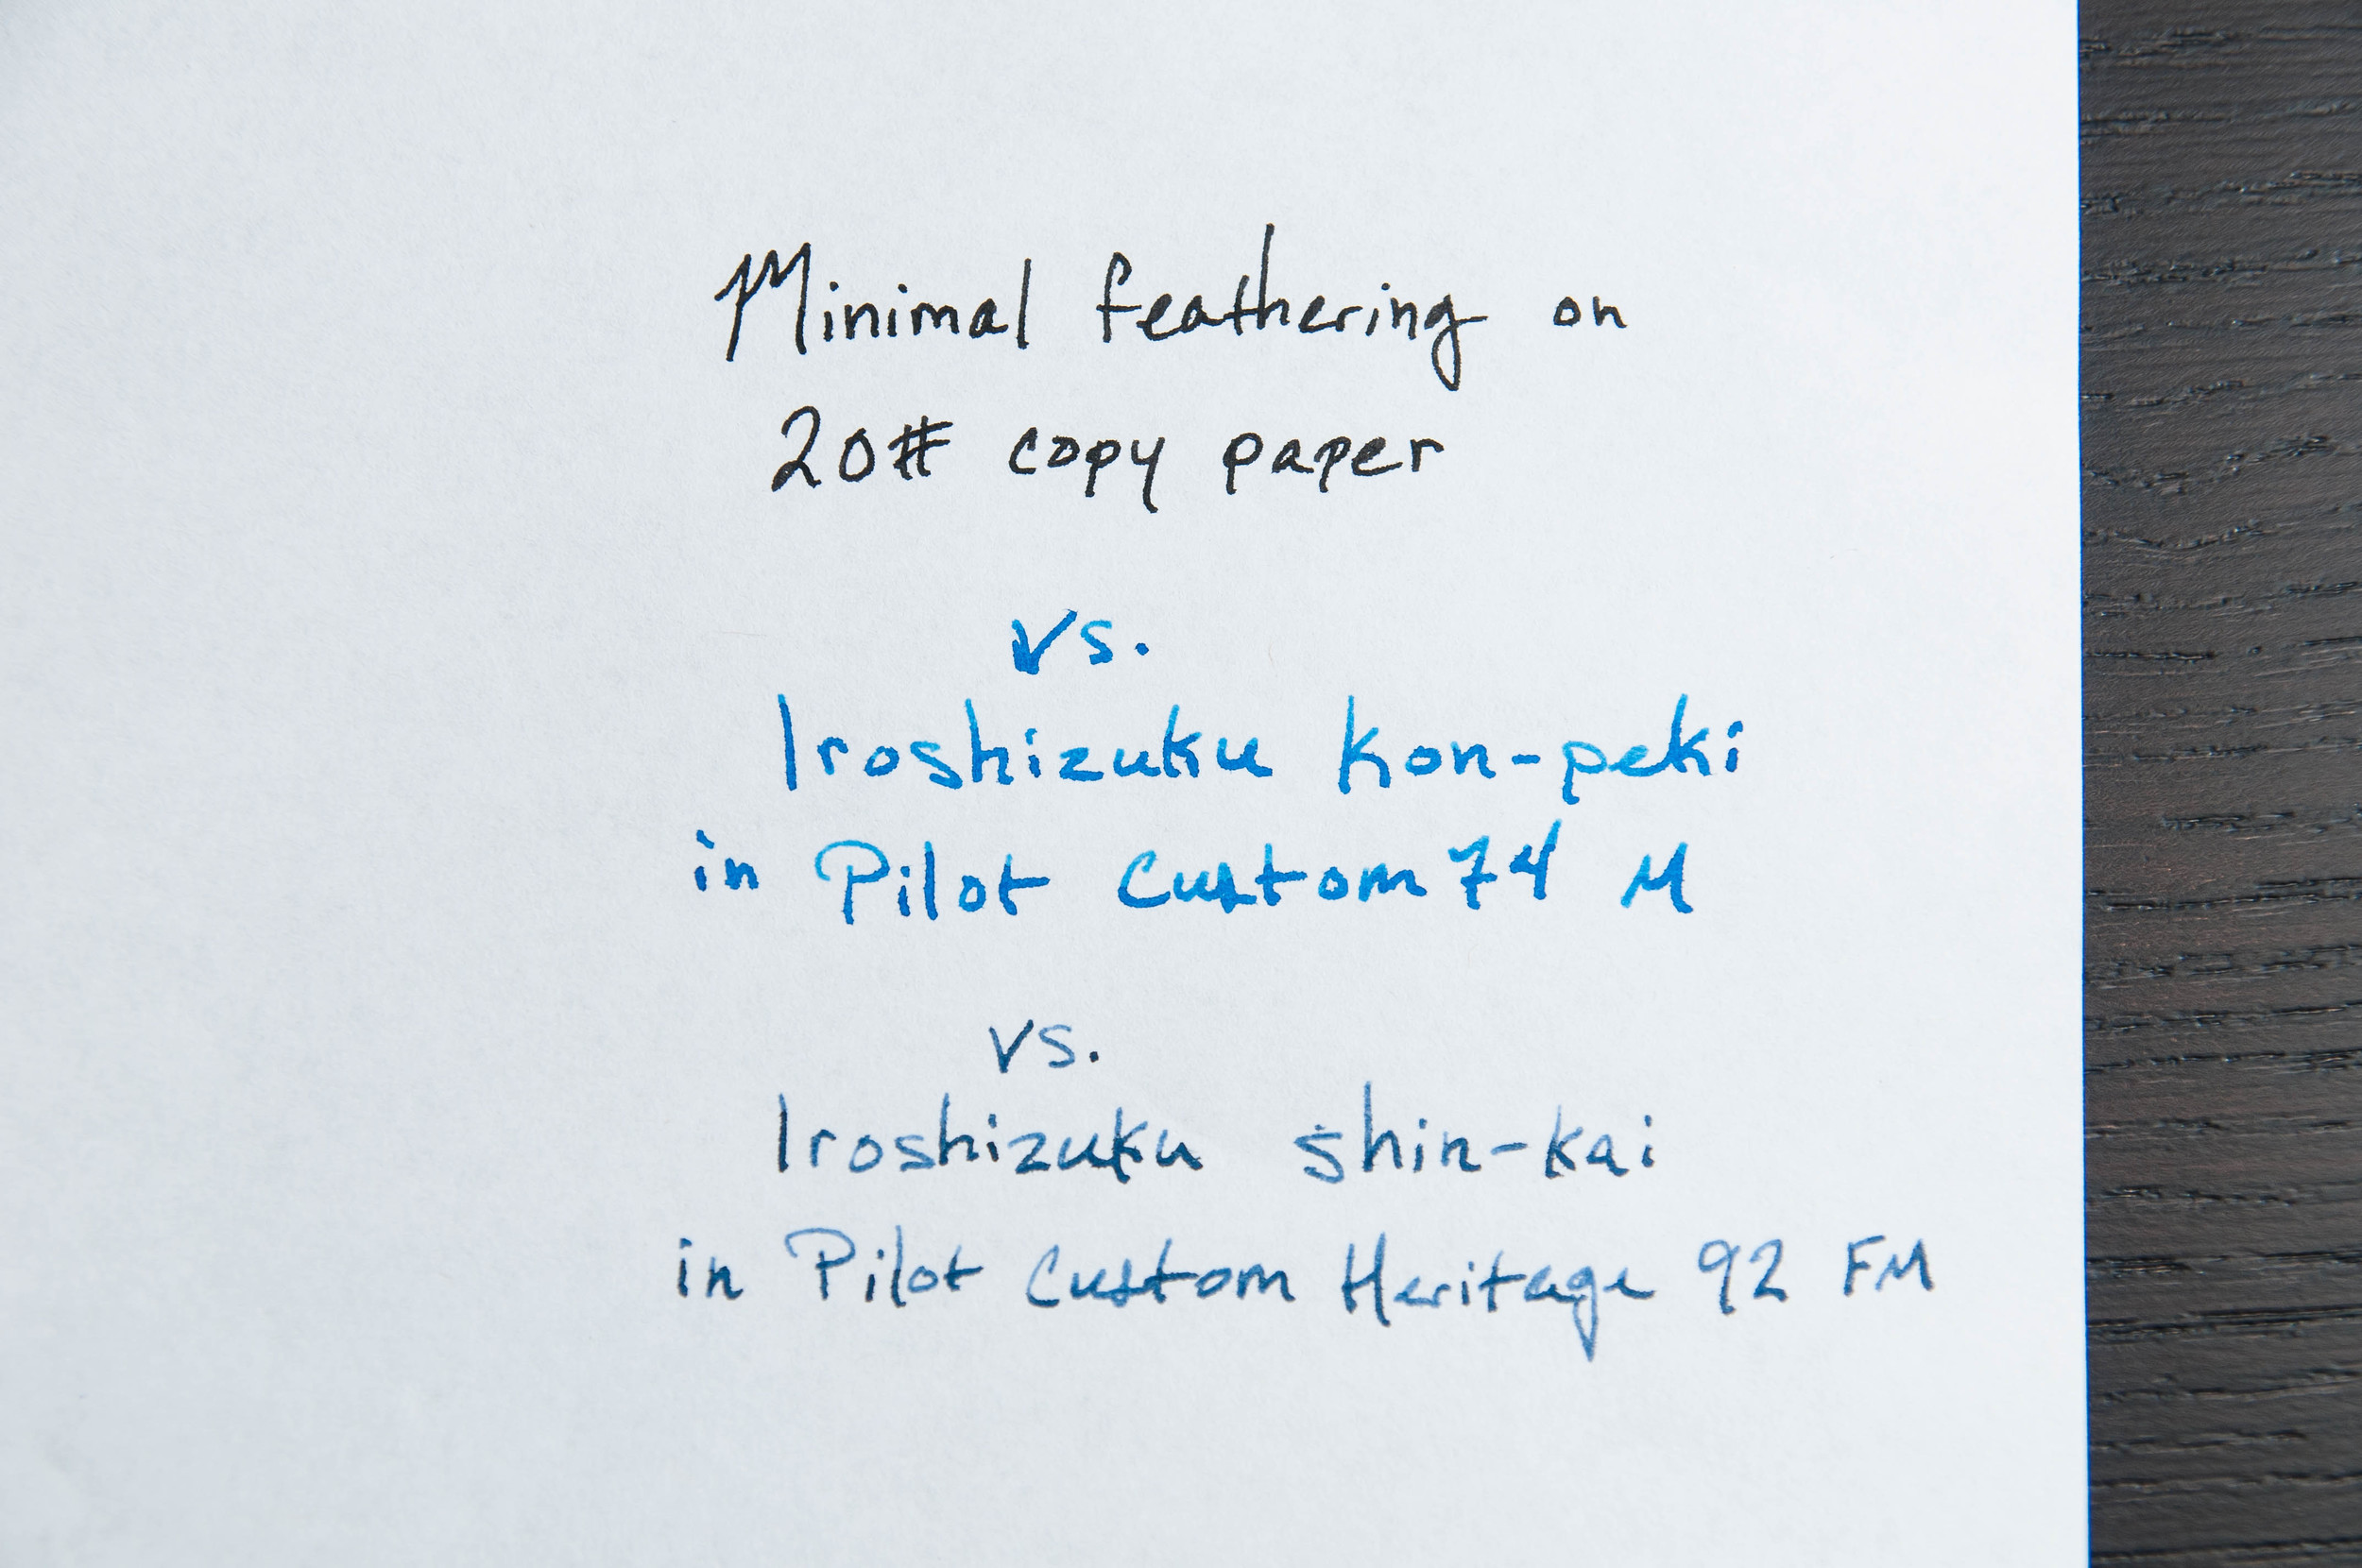 Minimal feathering on
20# copy paper
vs.
Iroshizuku kon-peki
in Pilot Custom 74 M
vs.
Iroshizuku shin-kai
in Pilot Custom Heritage 92 FM